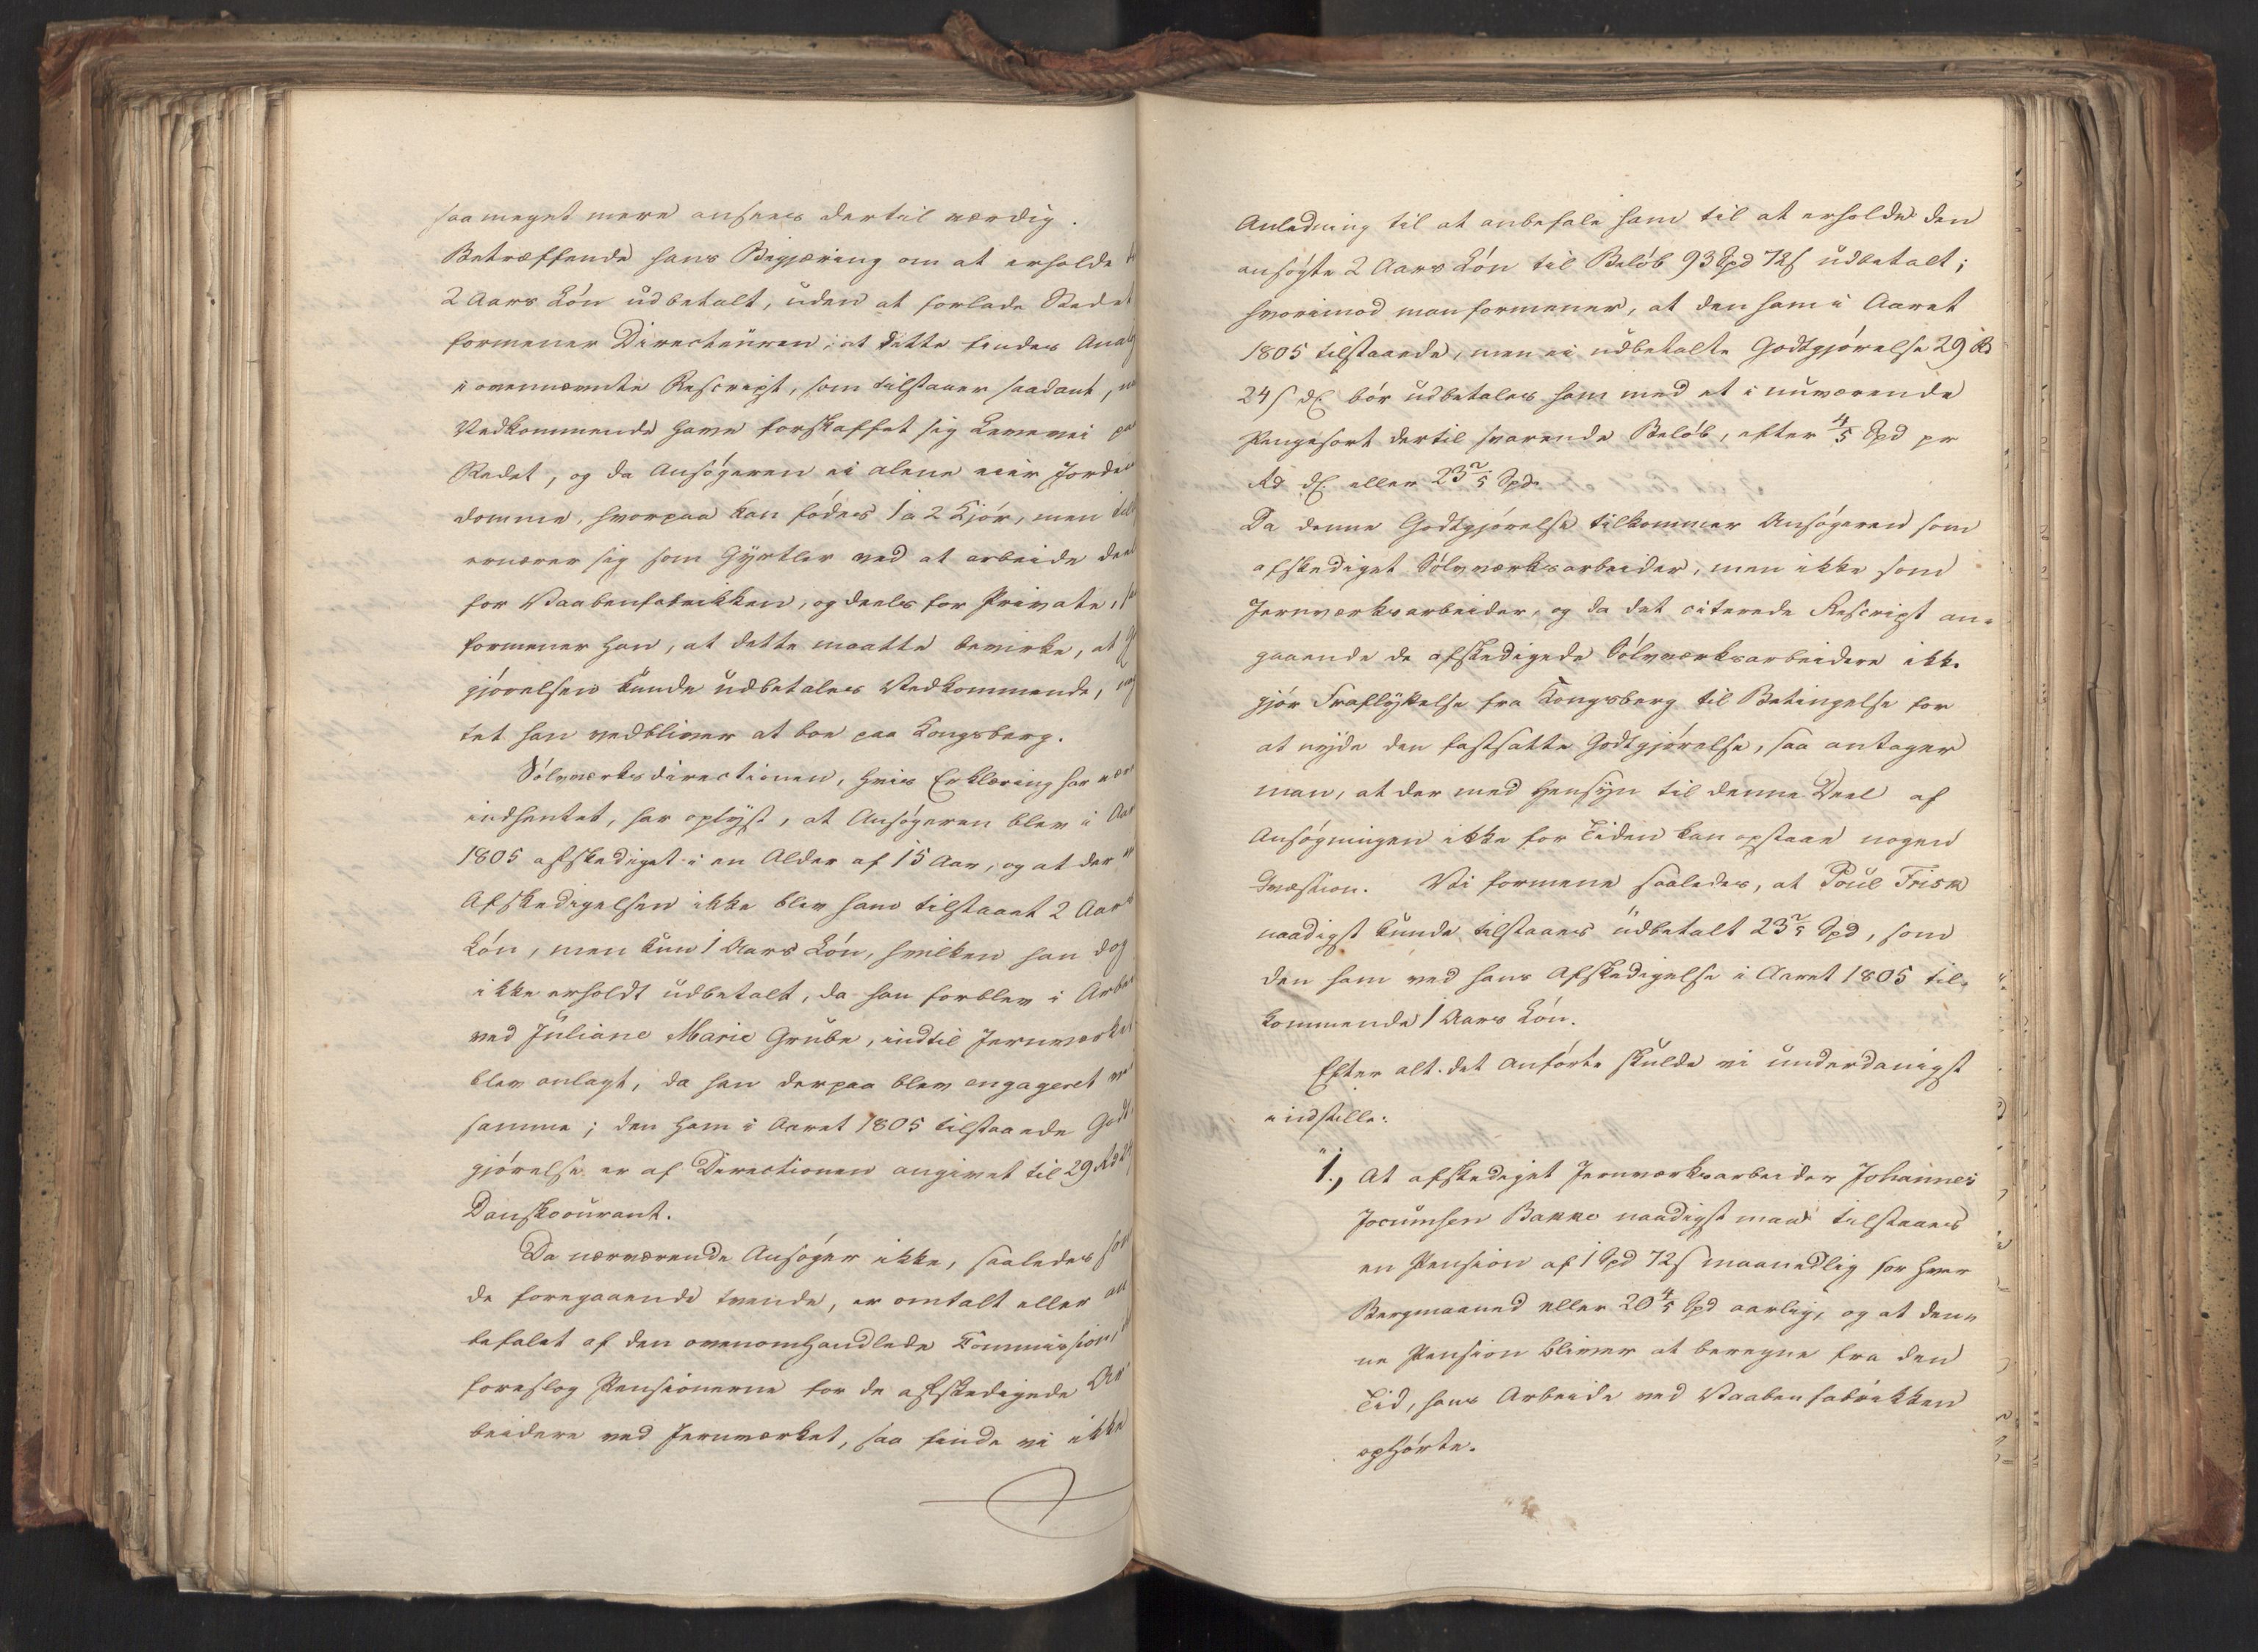 saameget mere ansees dertil værdig.
Betræffende hans Begjæring om at erholde
2 Aars Lön udbetalt, uden at forlade Stedet
formener Directeuren, at dette findes
i ovennævnte Rescript, som tilstaaer saadant,
Vedkommende have forskaffet sig Levevei paa
Stedet, og da Ansögeren ei alene eier Jorden
domme, hvorpaa kan födes 1 a 2 Kjör, men
ernærer sig som Gjørtler ved at arbeide deels
for Vaabenfabrikken, og deels for Private,
formener han, at dette maatte bevirke, at
gjörelsen kunde udbetales Vedkommende,
tet han vedbliver at boe paa Kongsberg.
Sölvværksdirectionen, hvis Erklæring har været
indhentet, har oplyst, at Ansögeren blev i Aar
1805 afskediget i en Alder af 15 Aar, og at der
Afskedigelsen ikke blev ham tilstaaet 2 Aars
Lön, men kun 1 Aars Lön, hvilken han dog
ikke erholdt udbetalt, da han forblev i Arbei
ved Juliane Marie Grube, indtil Jernværket
blev anlagt, da han derpaa blev engageret ved
samme; den ham i Aaret 1805 tilstaaede Godt-
gjörelse er af Directionen angivet til 29 Rd 24
Danskcourant.
Da nærværende Ansöger ikke, saaledes som
de foregaaende tvende, er omtalt eller an
befalet af den ovenomhandlede Commission,
foreslog Pensionerne for de afskedigede Ar
beidere ved Jernværket, saa finde vi ikke
Anledning til at anbefale ham til at erholde den
ansögte 2 Aars Lön til Belöb 93 Spd 72 s udbetalt;
hvorimod man formener, at den ham i Aaret
1805 tilstaaede, men ei udbetalte Godtgjörelse 29 Rd
24 s d.C. bör udbetales ham med et i nuværende
Pengesort dertil svarende Belöb, efter 4/5 Spd pr
Rd d.C. eller 23 2/5 Spd.
Da denne Godtgjörelse tilkommer Ansögeren som
afskediget Sölvværksarbeider, men ikke som
Jernværksarbeider, og da det citerede Rescript an-
gaaende de afskedigede Sölvværksarbeidere ikke
gjör Fraflyttelse fra Kongsberg til Betingelse for
at nyde den fastsatte Godtgjörelse, saa antager
man, at der med Hensyn til denne Deel af
Ansögningen ikke for Tiden kan opstaae nogen
Qvæstion. Vi formene saaledes, at Poul Frisk
naadigst kunde tilstaaes udbetalt 23 2/5 Spd, som
den ham ved hans Afskedigelse i Aaret 1805 til-
kommende 1 Aars Lön.
Efter alt det Anförte skulde vi underdanigst
indstille:
1., At afskediget Jernværksarbeider Johannes
Jocumsen Bakke naadigst maae tilstaaes
en Pension af 1 Spd 72 s maanedlig for hver
Bergmaaned eller 20 4/5 Spd aarlig, og at den-
ne Pension bliver at beregne fra den
Tid, hans Arbeide ved Vaabenfabrikken
ophörte.